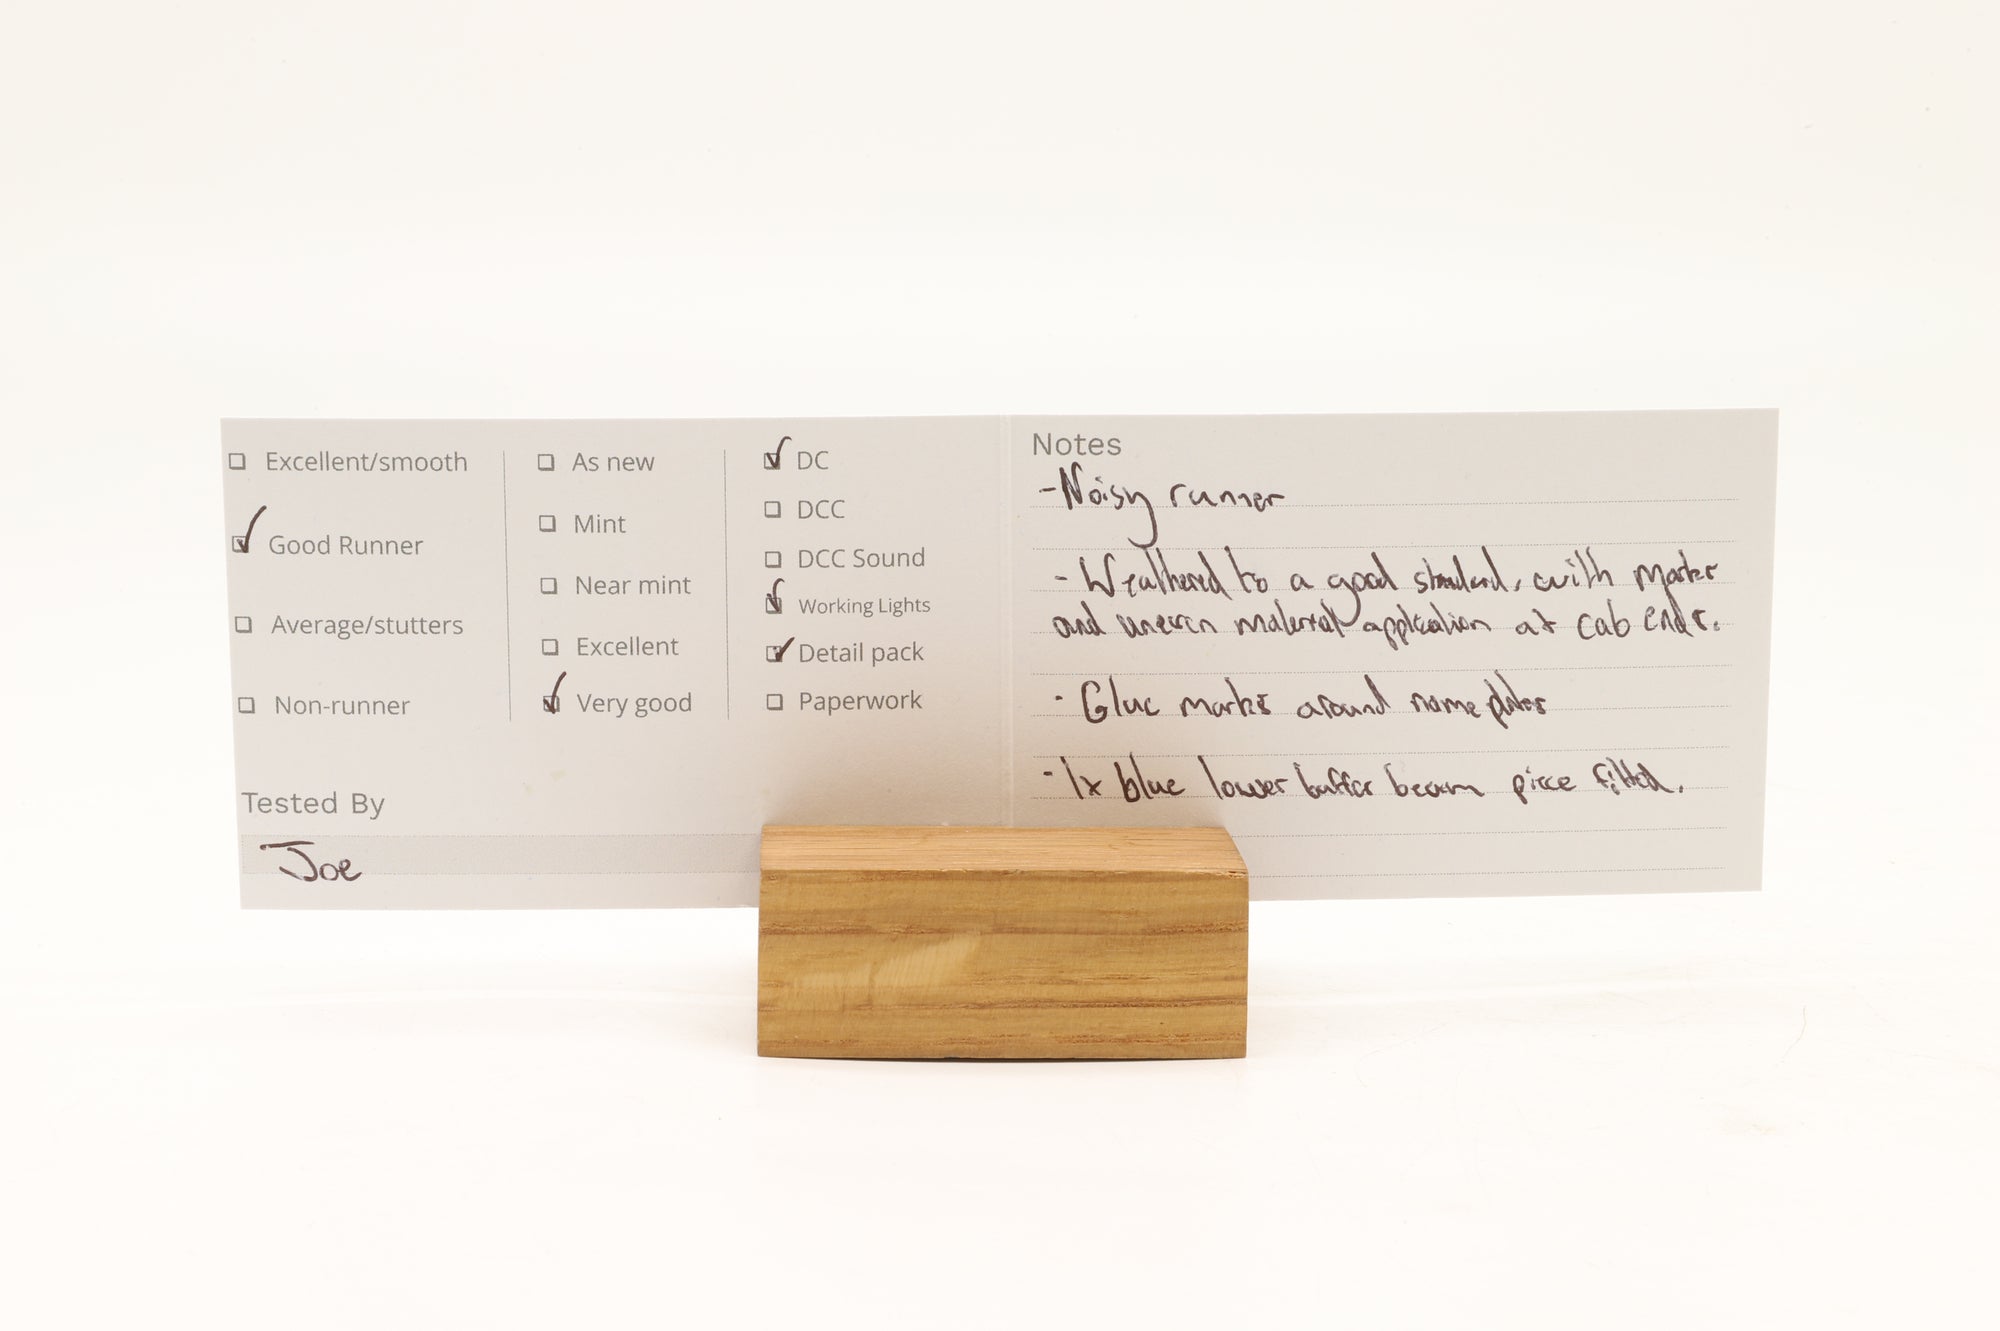 Excellent/smooth
Good Runner
Average/stutters
Non-runner
As new
Mint
Near mint
Excellent
Very good
DC
DCC
DCC Sound
Working Lights
Detail pack
Paperwork
Tested By
Joe
Notes
-Noisy runner
- Weathered to a good standard, with marks
and uneven material application at cab ends.
- Glue marks around nameplates
- 1x blue lower buffer beam piece fitted.